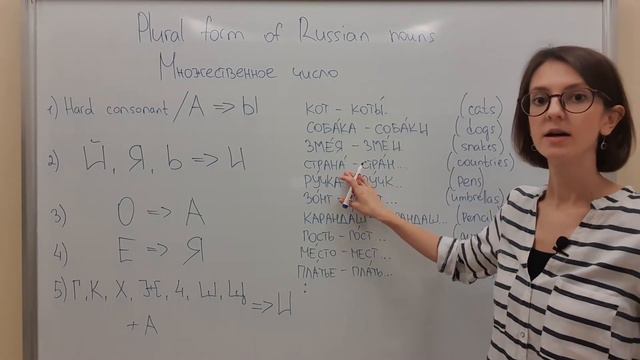 Plural form of Russian nouns
Множественное число
1) Hard consonant /А => Ы
2) Й, Я, Ь => И
3) О => А
4) Е => Я
5) Г, К, Х, Ж, Ч, Ш, Щ => И
+ А
КОТ – КОТЫ́. (cats)
СОБА́КА – СОБА́КИ (dogs)
ЗМЕЯ́ – ЗМЕ́И (snakes)
СТРАНА́ – СТРА́Н... (countries)
РУ́ЧКА (pens)
ЗОНТ – (umbrellas)
КАРАНДАШ – ...АНДАШ... (pencils
ГОСТЬ – ГО́СТ...
МЕ́СТО – МЕСТ...
ПЛА́ТЬЕ – ПЛА́ТЬ...
: